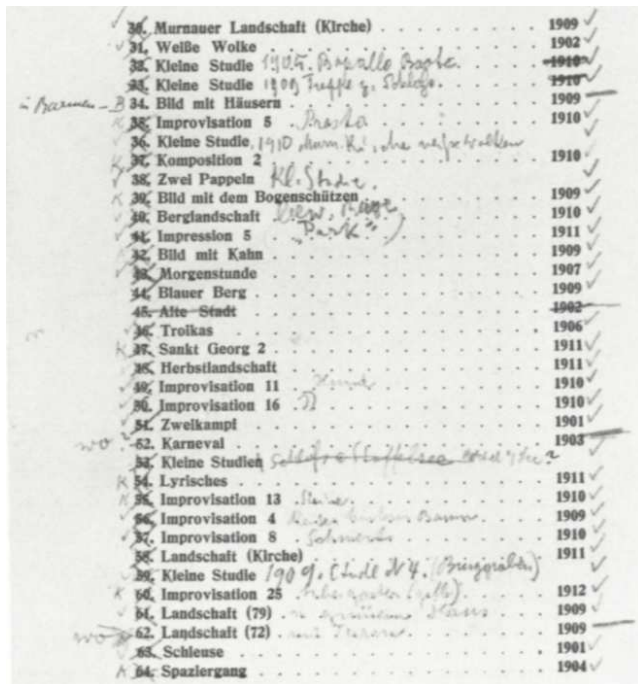 30. Murnauer Landschaft (Kirche) . . . . . 1909
31. Weiße Wolke . . . . . 1902
32. Kleine Studie 1905. Rapallo Boote 1910
33. Kleine Studie 1909 1910
in Barmen – B 34. Bild mit Häusern . . . . . 1909
35. Improvisation 5 . . . . . 1910
36. Kleine Studie 1910
37. Komposition 2 . . . . . 1910
38. Zwei Pappeln Kl. Studie.
39. Bild mit dem Bogenschützen . . . . . 1909
40. Berglandschaft . . . . . 1910
41. Impression 5 „Park“) . . . . . 1911
42. Bild mit Kahn . . . . . 1909
43. Morgenstunde . . . . . 1907
44. Blauer Berg . . . . . 1909
45. Alte Stadt . . . . . 1902
46. Troikas . . . . . 1906
47. Sankt Georg 2 . . . . . 1911
48. Herbstlandschaft . . . . . 1911
49. Improvisation 11 . . . . . 1910
50. Improvisation 16 . . . . . 1910
51. Zweikampf . . . . . 1901
wo? 52. Karneval . . . . . 1903
53. Kleine Studien
54. Lyrisches . . . . . 1911
55. Improvisation 13 . . . . . 1910
56. Improvisation 4 . . . . . 1909
57. Improvisation 8 . . . . . 1910
58. Landschaft (Kirche) . . . . . 1911
59. Kleine Studie 1909.
60. Improvisation 25 . . . . . 1912
61. Landschaft (79) . . . . . 1909
wo 62. Landschaft (72) . . . . . 1909
63. Schleuse . . . . . 1901
64. Spaziergang . . . . . 1904